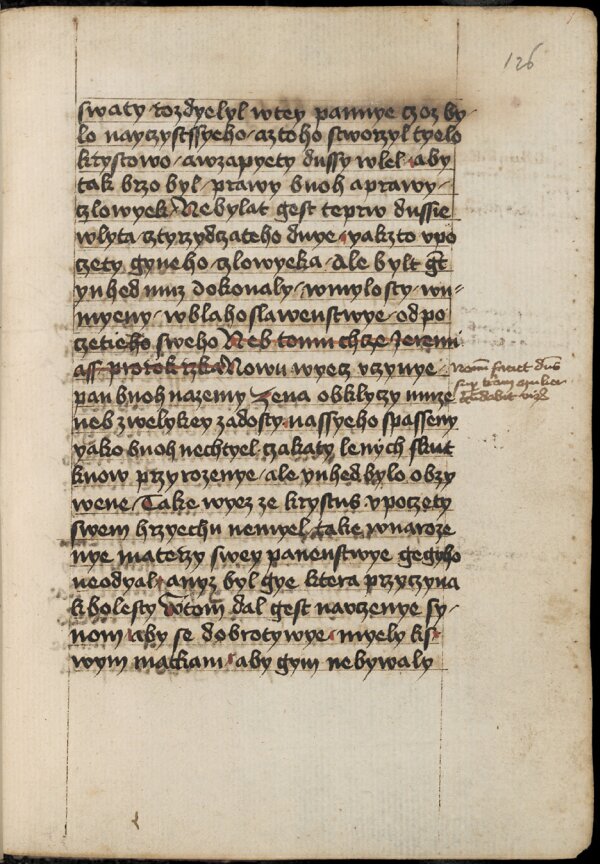 126
swaty rozdyelyl wtey pannye czoz by-
lo nayczystssyeho aztoho stworzyl tyelo
krystowo awzapyety dussy wlel aby
tak brzo byl prawy buoh aprawy
czlowyek Nebylat gest teprw dussie
wlyta cztyrzydczateho dnye yakzto vpo
czety gyneho czlowyeka Ale bylt
ynhed muz dokonaly wmylosty wu-
myeny wblahoslawenstwye odpo
czetieho sweho Neb tomu chze Jeremi
ass prorok rzka Nowu wyecz vczynye
pan buoh nazemy zena obklyczy muze
neb zwelykey zadosty nassyeho spasseny
yako buoh nechtyel czakaty lenych skut
kuow przyrozenye ale ynhed bylo obzy
wene Take wyez ze krystus vpoczety
swem hrzyechu nemyel take wnaroze
nye materzy swey panenstwye gegyho
neodyal anyz byl gye ktera przyczyna
kbolesty Wtom dal gest nauczenye sy-
nom aby se dobrotywye myely ks
wym matkam aby gym nebywaly